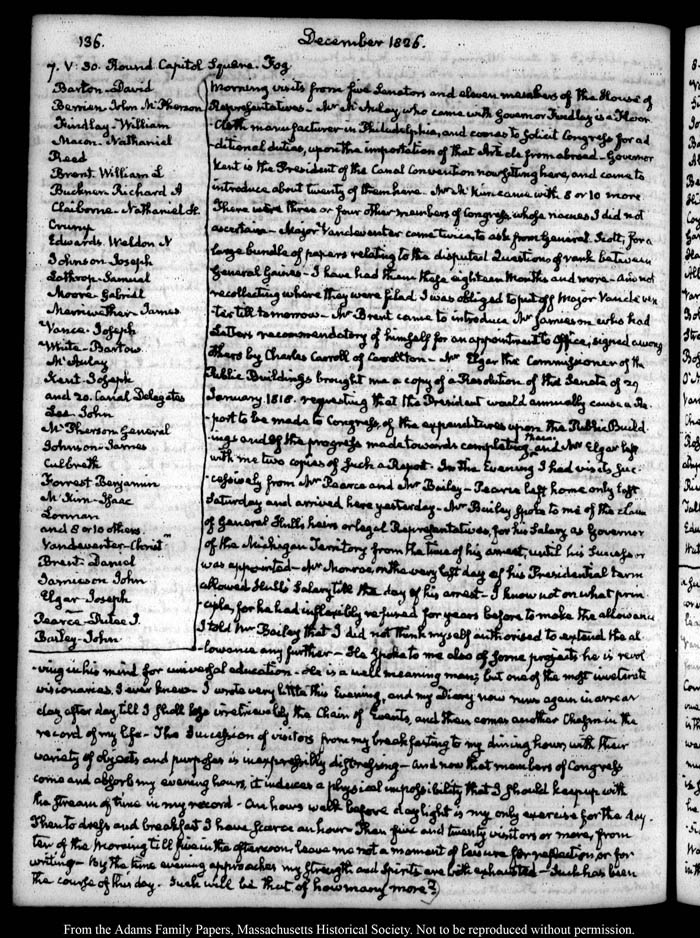 136.
December 1826.
7. V: 30. Round Capitol Square. Fog
Barton - David
Berrien. John McPherson
Findlay - William
Macon - Nathaniel
Reed
Brent. William L
Buckner Richard A
Claiborne - Nathaniel H.
Crump
Edwards. Weldon N
Johnson Joseph
Lathrop. Samuel
Moore. Gabriel
Merriwether - James
Vance - Joseph
White - Bartow
McAulay
Kent - Joseph
and 20. Canal Delegates
Lee - John
McPherson General
Johnson - James
Culbreth
Forrest Benjamin
McKim - Isaac
Lorman
and 8 or 10 others
Vandeventer - Christr
Brent. Daniel
Jamieson John
Elgar Joseph
Pearce - Dutee J.
Bailey - John
Morning visits from five Senators and eleven members of the House of
Representatives - Mr McAulay who came with Governor Findlay is a Floor
-Cloth manufacturer in Philadelphia, and comes to solicit Congress for ad
ditional duties, upon the importation of that Article from abroad - Governor
Kent is the President of the Canal Convention now sitting here, and came to
introduce about twenty of them here. Mr McKim came with 8 or 10 more
There were three or four other members of Congress whose names I did not
ascertain - Major Vandeventer came twice, to ask from General Scott, for a
large bundle of papers relating to the disputed Questions of rank between
General Gaines - I have had them these eighteen Months and more - and not
recollecting where they were filed I was obliged to put off Major Vandeven
ter till tomorrow - Mr Brent came to introduce Mr Jamieson who had
Letters recommendatory of himself for an appointment to Office, signed among
others by Charles Carroll of Carrollton - Mr Elgar the Commissioner of the
Public Buildings brought me a copy of a Resolution of the Senate of 29
January 1818. requesting that the President would annually cause a Re
-port to be made to Congress of the expenditures upon the Public Build
-ings and of the progress made towards completing them, and Mr Elgar left
with me two copies of such a Report. In the Evening I had visits suc
-cessively from Mr Pearce and Mr Bailey - Pearce left home only last
Saturday and arrived here yesterday - Mr Bailey spoke to me of the claim
of General Hull's heirs or legal Representatives, for his Salary as Governor
of the Michigan Territory from the time of his arrest, until his Successor
was appointed - Mr Monroe, on the very last day of his Presidential term
allowed Hull's Salary till the day of his arrest - I know not on what prin
-ciple, for he had inflexibly refused for years before to make the allowance
I told Mr Bailey that I did not think myself authorised to extend the al
-lowance any further - He spoke to me also of some projects he is revol
-ving in his mind for universal education. He is a well meaning man; but one of the most inveterate
visionaries, I ever knew - I wrote very little this Evening, and my Diary now runs again in arrear
day after day till I shall lose irretrievably the Chain of Events, and then comes another Chasm in the
record of my life - The Succession of visitors from my breakfasting to my dining hour, with their
variety of objects and purposes is inexpressibly distressing - And now that members of Congress
come and absorb my evening hours, it induces a physical impossibility that I should keep up with
the stream of time in my record - An hours walk before daylight is my only exercise for the day.
Then to dress and breakfast I have scarce an hour - Then five and twenty visitors or more, from
ten of the morning till five in the afternoon leave me not a moment of leisure for reflection or for
writing - By the time evening approaches my strength and spirits are both exhausted - Such has been
the course of this day. Such will be that of how many more?
From the Adams Family Papers, Massachusetts Historical Society. Not to be reproduced without permission.